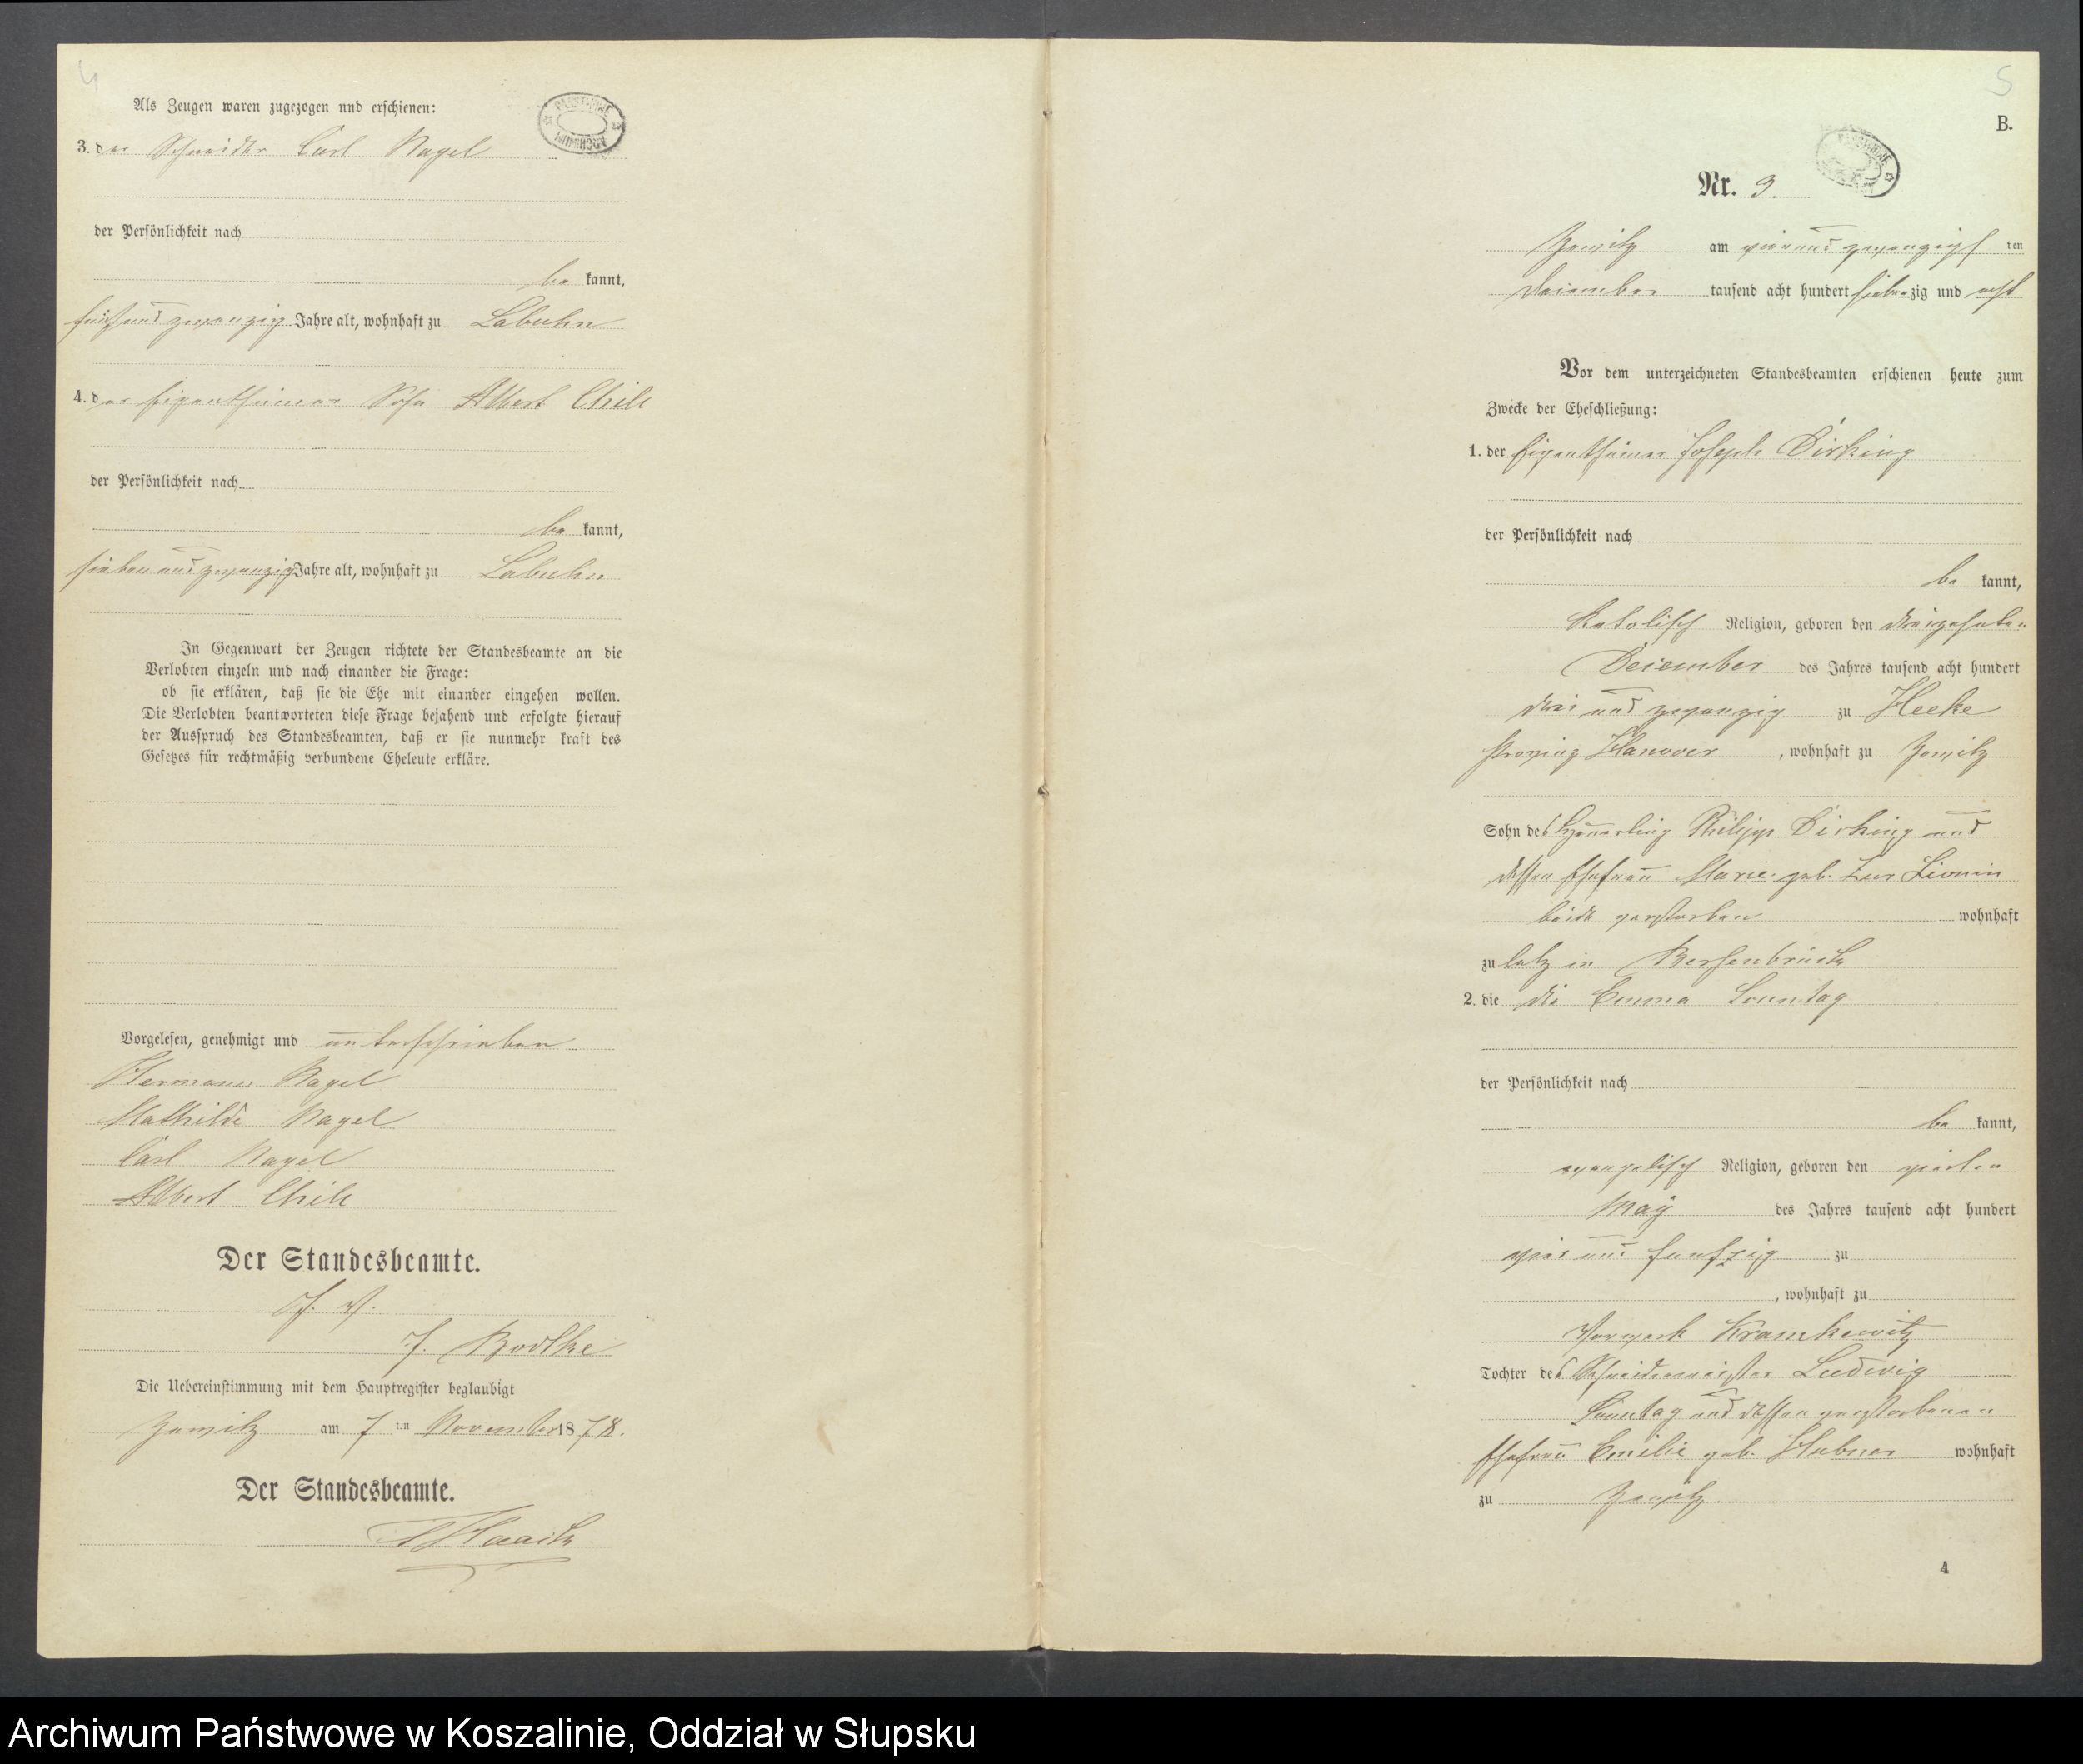 4
Als Zeugen waren zugezogen und erschienen:
3. der Schneider Carl Nagel
der Persönlichkeit nach
be kannt,
fünf und zwanzig Jahre alt, wohnhaft zu Labuhn
4. der Eigenthümer Sohn Albert
der Persönlichkeit nach
be kannt,
sieben und zwanzig Jahre alt, wohnhaft zu Labuhn
In Gegenwart der Zeugen richtete der Standesbeamte an die
Verlobten einzeln und nach einander die Frage:
ob sie erklären, daß sie die Ehe mit einander eingehen wollen.
Die Verlobten beantworteten diese Frage bejahend und erfolgte hierauf
der Ausspruch des Standesbeamten, daß er sie nunmehr kraft des
Gesetzes für rechtmäßig verbundene Eheleute erkläre.
Vorgelesen, genehmigt und unterschrieben
Hermann Nagel
Mathilde Nagel
Carl Nagel
Albert
Der Standesbeamte.
J. V.
J. Rodtke
Die Uebereinstimmung mit dem Hauptregister beglaubigt
Zewitz am 7 ten November 1878.
Der Standesbeamte.
Haack
5
B.
Nr. 3.
Zewitz am vier und zwanzigsten
Deiember tausend acht hundert siebenzig und acht
Vor dem unterzeichneten Standesbeamten erschienen heute zum
Zwecke der Eheschließung:
1. der Eigenthümer Joseph Dirking
der Persönlichkeit nach
be kannt,
katolisch Religion, geboren den dreizehnten
Deiember des Jahres tausend acht hundert
drei und zwanzig zu Heeke
Provinz Hanover, wohnhaft zu Zewitz
Sohn des Heuerling Philipp Dirking und
dessen Ehefrau Marie geb. zur
beide verstorben wohnhaft
zu letz in Bersenbrück
2. die die Emma Sonntag
der Persönlichkeit nach
be kannt,
evangelisch Religion, geboren den vierten
May des Jahres tausend acht hundert
vier und funfzig zu
, wohnhaft zu
Vorwerk Krampkewitz
Tochter des Schneidemeister Ludwig
Sonntag und dessen verstorbenen
Ehefrau Emilie geb. Hubner wohnhaft
zu Zewitz
4
Archiwum Państwowe w Koszalinie, Oddział w Słupsku